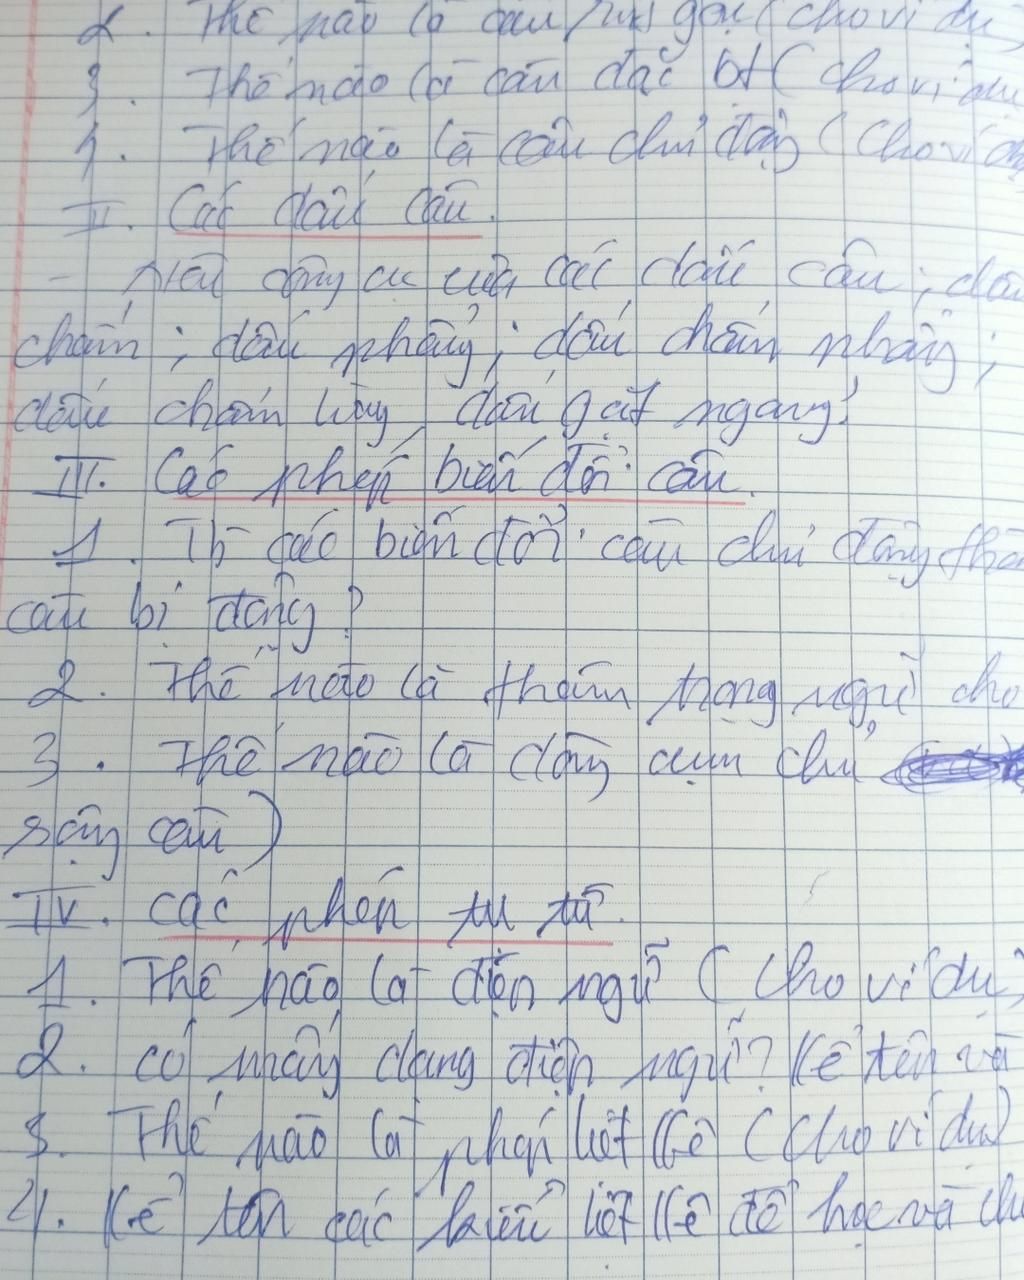 2. Thế nào là câu rút gọn ( cho ví dụ)
3. Thế nào là câu đặc bt ( cho ví dụ
4. Thế nào là câu chủ động ( cho ví dụ
II. Các dấu câu.
- Nêu công dụng của các dấu câu; dấu
chấm; dấu phẩy; dấu chấm phẩy;
dấu chấm lửng, dấu gạt ngang!
III. Các phép biến đổi câu.
1. biến đổi câu chủ động
câu bị động?
2. Thế nào là thêm trạng ngữ cho
3. Thế nào là dùng cụm chủ
câu)
IV. Các phép tu từ.
1. Thế nào là điệp ngữ ( cho ví dụ)
2. Có mấy dạng điệp ngữ? Kể tên và
3. Thế nào là phép liệt kê ( cho ví dụ)
4. Kể tên các kiểu liệt kê đã học và